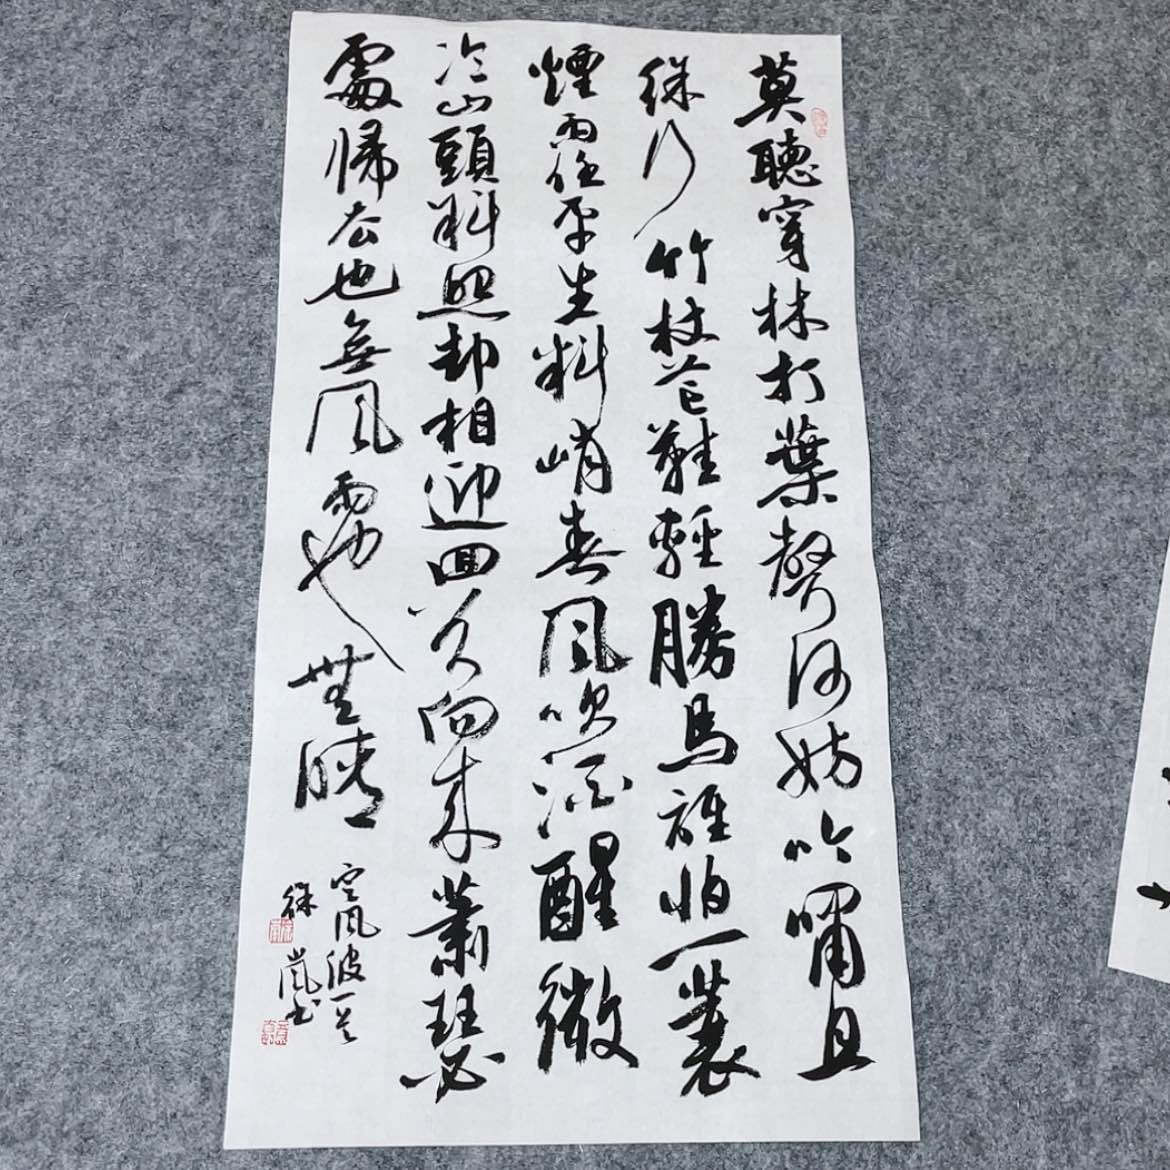 莫聽穿林打葉聲何妨吟嘯且
徐行竹杖芒鞋輕勝馬誰怕一蓑
煙雨任平生料峭春風吹酒醒微
冷山頭斜照却相迎回首向来蕭瑟
處歸去也無風雨也無晴
定風波一首
徐嵐书